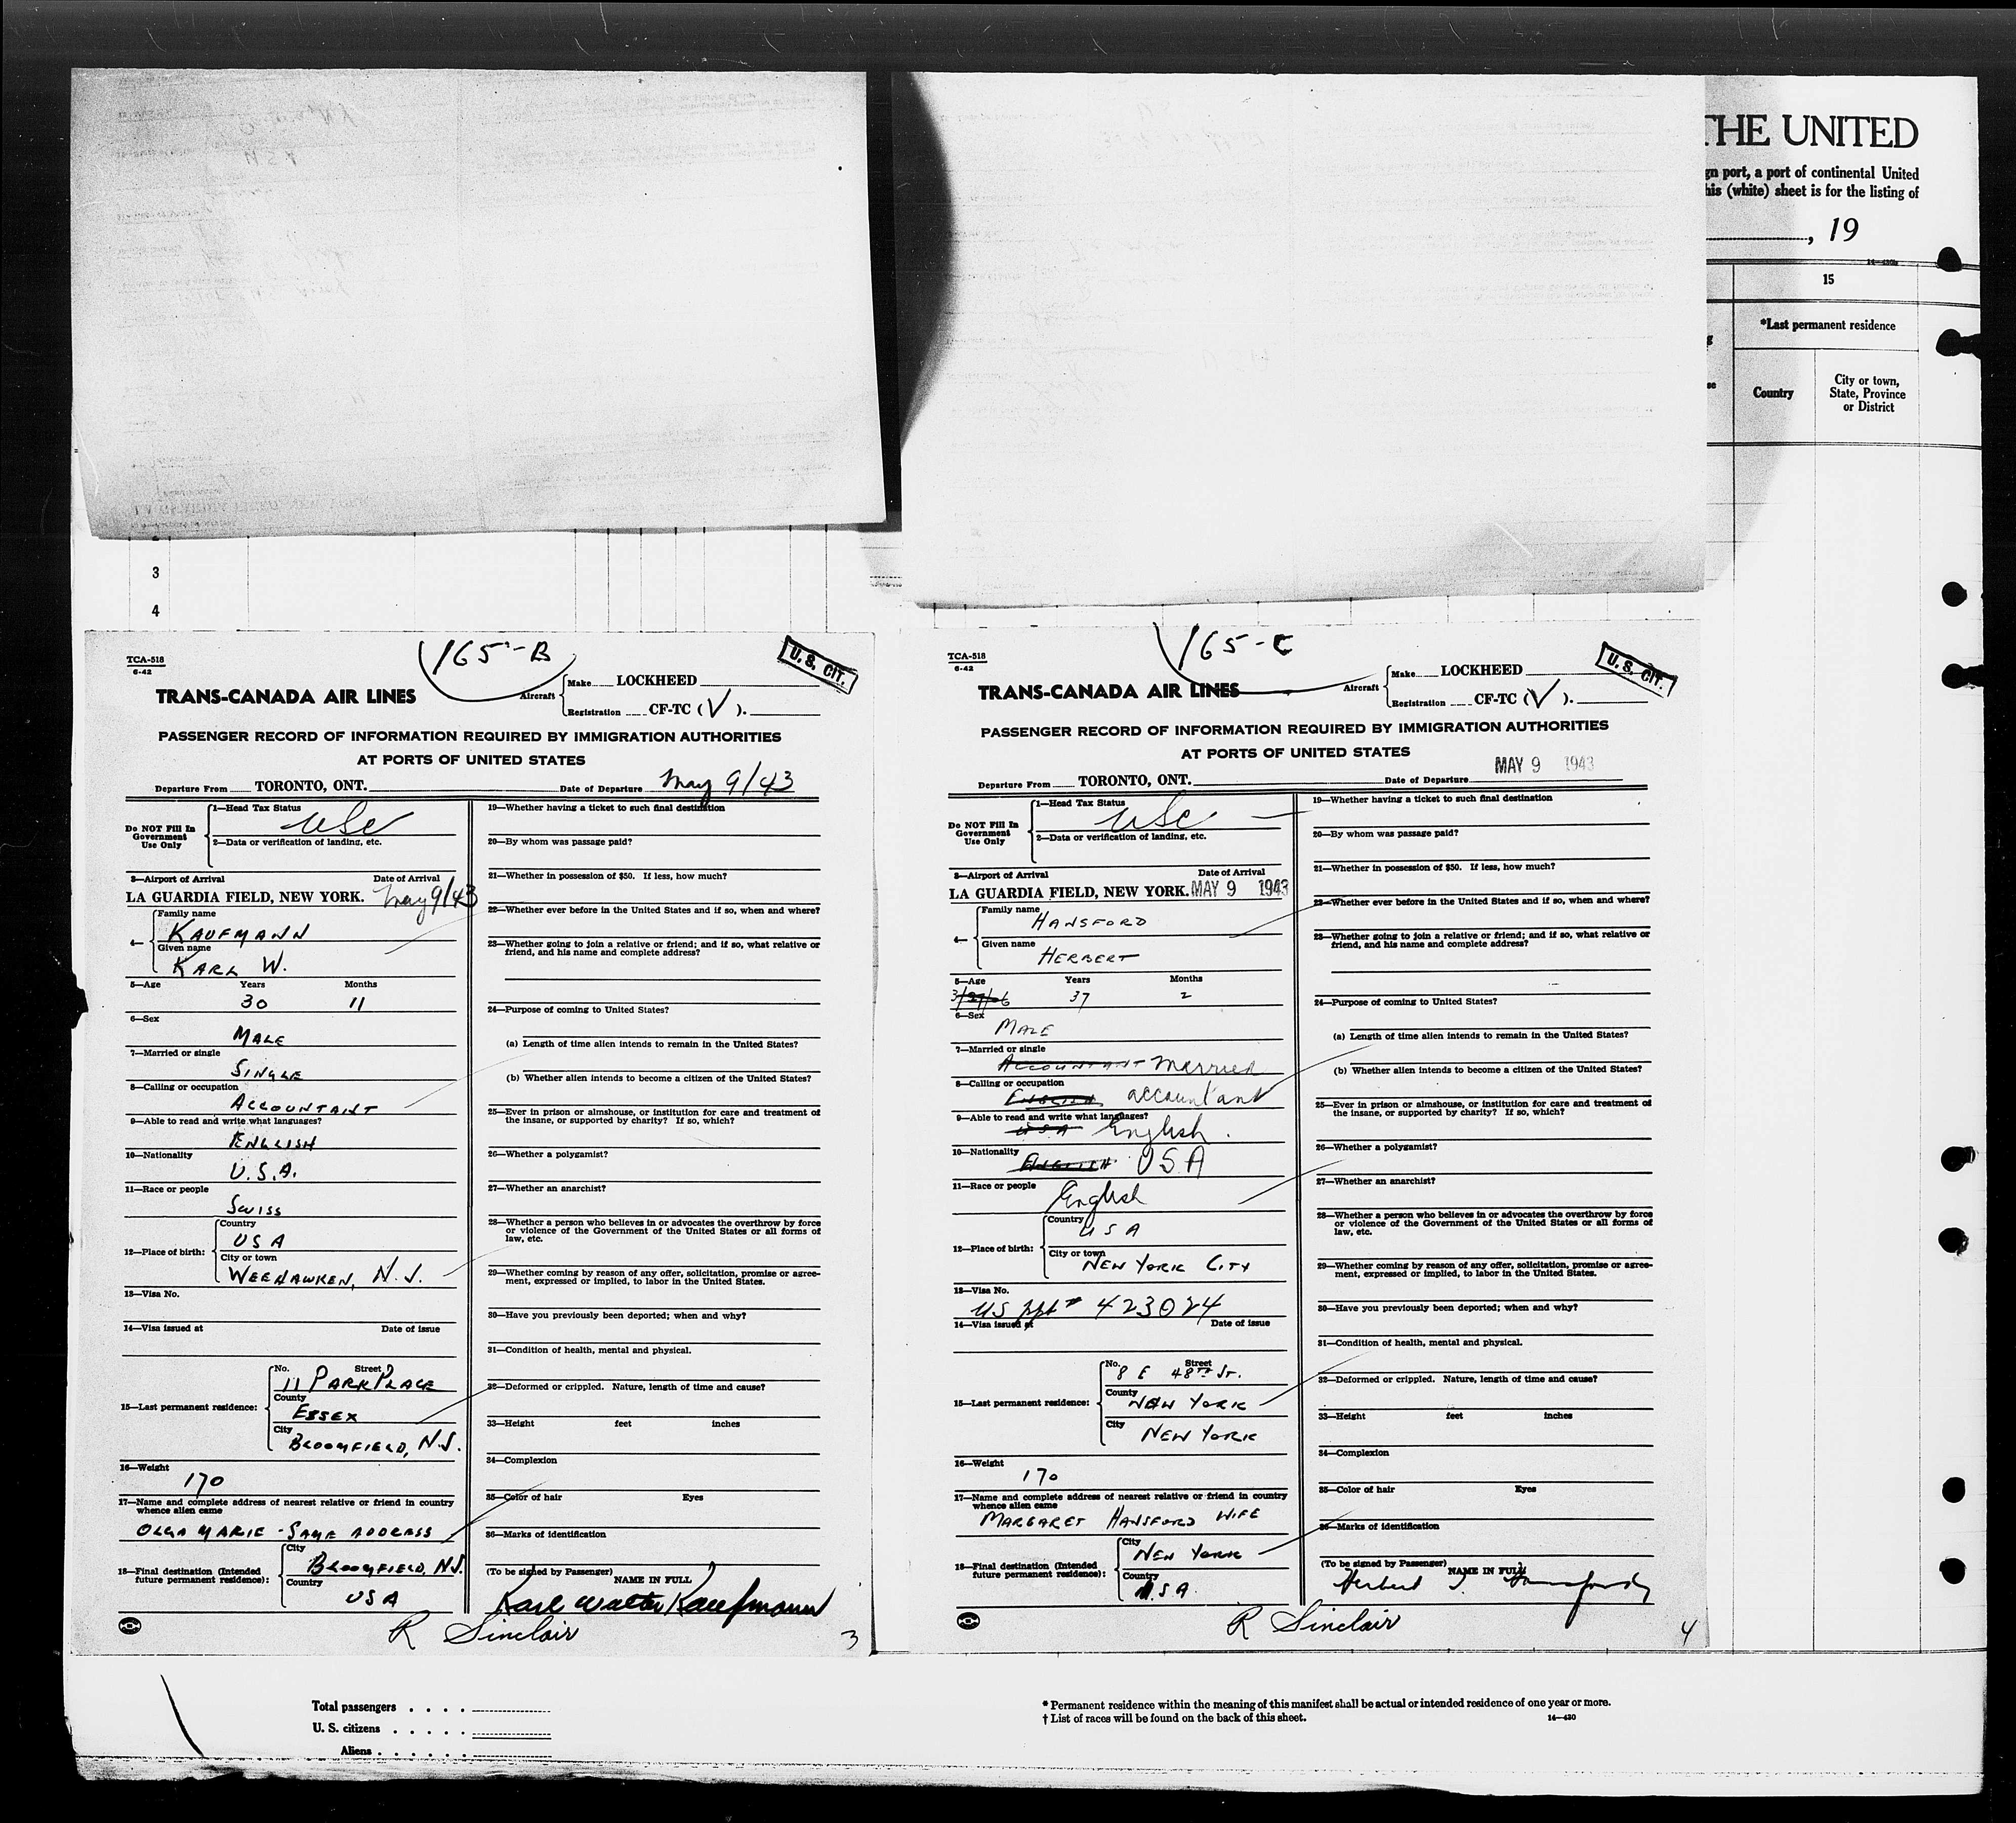 THE UNITED
gn port, a port of continental United
his (white) sheet is for the listing of
, 19
14—430a
15
*Last permanent residence
Country
City or town,
State, Province
or District
3
4
165-B
U. S. CIT.
TCA-518
6-42
TRANS-CANADA AIR LINES
Aircraft
Make LOCKHEED
Registration CF-TC (V).
PASSENGER RECORD OF INFORMATION REQUIRED BY IMMIGRATION AUTHORITIES
AT PORTS OF UNITED STATES
Departure From TORONTO, ONT. Date of Departure May 9/43
Do NOT Fill In
Government
Use Only
1—Head Tax Status
USC
2—Data or verification of landing, etc.
3—Airport of Arrival Date of Arrival
LA GUARDIA FIELD, NEW YORK. May 9/43
4—
Family name
KAUFMANN
Given name
KARL W.
5—Age Years Months
30 11
6—Sex
MALE
7—Married or single
SINGLE
8—Calling or occupation
ACCOUNTANT
9—Able to read and write what languages?
ENGLISH
10—Nationality
U.S.A.
11—Race or people
SWISS
12—Place of birth:
Country
USA
City or town
WEEHAWKEN, N.J.
13—Visa No.
14—Visa issued at Date of issue
15—Last permanent residence:
No. Street
11 PARK PLACE
County
ESSEX
City
BLOOMFIELD, N.J.
16—Weight
170
17—Name and complete address of nearest relative or friend in country
whence alien came
OLGA MARIE - SAME ADDRESS
18—Final destination (Intended
future permanent residence):
City
BLOOMFIELD, N.J.
Country
USA
19—Whether having a ticket to such final destination
20—By whom was passage paid?
21—Whether in possession of $50. If less, how much?
22—Whether ever before in the United States and if so, when and where?
23—Whether going to join a relative or friend; and if so, what relative or
friend, and his name and complete address?
24—Purpose of coming to United States?
(a) Length of time alien intends to remain in the United States?
(b) Whether alien intends to become a citizen of the United States?
25—Ever in prison or almshouse, or institution for care and treatment of
the insane, or supported by charity? If so, which?
26—Whether a polygamist?
27—Whether an anarchist?
28—Whether a person who believes in or advocates the overthrow by force
or violence of the Government of the United States or all forms of
law, etc.
29—Whether coming by reason of any offer, solicitation, promise or agree-
ment, expressed or implied, to labor in the United States.
30—Have you previously been deported; when and why?
31—Condition of health, mental and physical.
32—Deformed or crippled. Nature, length of time and cause?
33—Height feet inches
34—Complexion
35—Color of hair Eyes
36—Marks of identification
(To be signed by Passenger)
NAME IN FULL
Karl Walter Kaufmann
R Sinclair
3
165-C
U. S. CIT.
TCA-518
6-42
TRANS-CANADA AIR LINES
Aircraft
Make LOCKHEED
Registration CF-TC (V).
PASSENGER RECORD OF INFORMATION REQUIRED BY IMMIGRATION AUTHORITIES
AT PORTS OF UNITED STATES
Departure From TORONTO, ONT. Date of Departure MAY 9 1943
Do NOT Fill In
Government
Use Only
1—Head Tax Status
USC
2—Data or verification of landing, etc.
3—Airport of Arrival Date of Arrival
LA GUARDIA FIELD, NEW YORK. MAY 9 1943
4—
Family name
HANSFORD
Given name
HERBERT
5—Age Years Months
37 2
6—Sex
MALE
7—Married or single
ACCOUNTANT Married
8—Calling or occupation
ENGLISH accountant
9—Able to read and write what languages?
USA English.
10—Nationality
ENGLISH USA
11—Race or people
English
12—Place of birth:
Country
USA
City or town
NEW YORK CITY
13—Visa No.
US ppt # 423024
14—Visa issued at Date of issue
15—Last permanent residence:
No. Street
8 E 48TH St.
County
NEW YORK
City
NEW YORK
16—Weight
170
17—Name and complete address of nearest relative or friend in country
whence alien came
MARGARET HANSFORD WIFE
18—Final destination (Intended
future permanent residence):
City
NEW YORK
Country
U.S.A.
19—Whether having a ticket to such final destination
20—By whom was passage paid?
21—Whether in possession of $50. If less, how much?
22—Whether ever before in the United States and if so, when and where?
23—Whether going to join a relative or friend; and if so, what relative or
friend, and his name and complete address?
24—Purpose of coming to United States?
(a) Length of time alien intends to remain in the United States?
(b) Whether alien intends to become a citizen of the United States?
25—Ever in prison or almshouse, or institution for care and treatment of
the insane, or supported by charity? If so, which?
26—Whether a polygamist?
27—Whether an anarchist?
28—Whether a person who believes in or advocates the overthrow by force
or violence of the Government of the United States or all forms of
law, etc.
29—Whether coming by reason of any offer, solicitation, promise or agree-
ment, expressed or implied, to labor in the United States.
30—Have you previously been deported; when and why?
31—Condition of health, mental and physical.
32—Deformed or crippled. Nature, length of time and cause?
33—Height feet inches
34—Complexion
35—Color of hair Eyes
36—Marks of identification
(To be signed by Passenger)
NAME IN FULL
Herbert J. Hansford
R Sinclair
4
Total passengers . . . .
U. S. citizens . . . . .
Aliens . . . . . .
* Permanent residence within the meaning of this manifest shall be actual or intended residence of one year or more.
† List of races will be found on the back of this sheet.
14—430